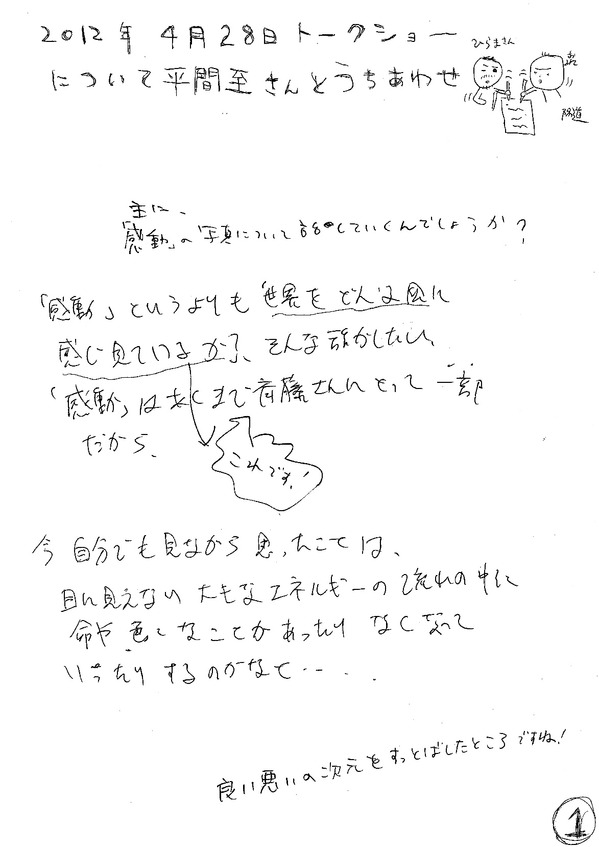 2012年 4月28日トークショー
について平間至さんとうちあわせ
ひらまさん
陽道
主に、
「感動」の写真について話していくんでしょうか?
「感動」というよりも「世界をどんな風に
感じ見ているか」、そんな話がしたい。
「感動」はあくまで齋藤さんにとって一部
だから、
これです!
今自分でも見ながら思ったことは、
目に見えない大きなエネルギーの流れの中に
命や色々なことがあったりなくなって
いったりするのかなと‥‥
良い悪いの次元をすっとばしたところですね!
1